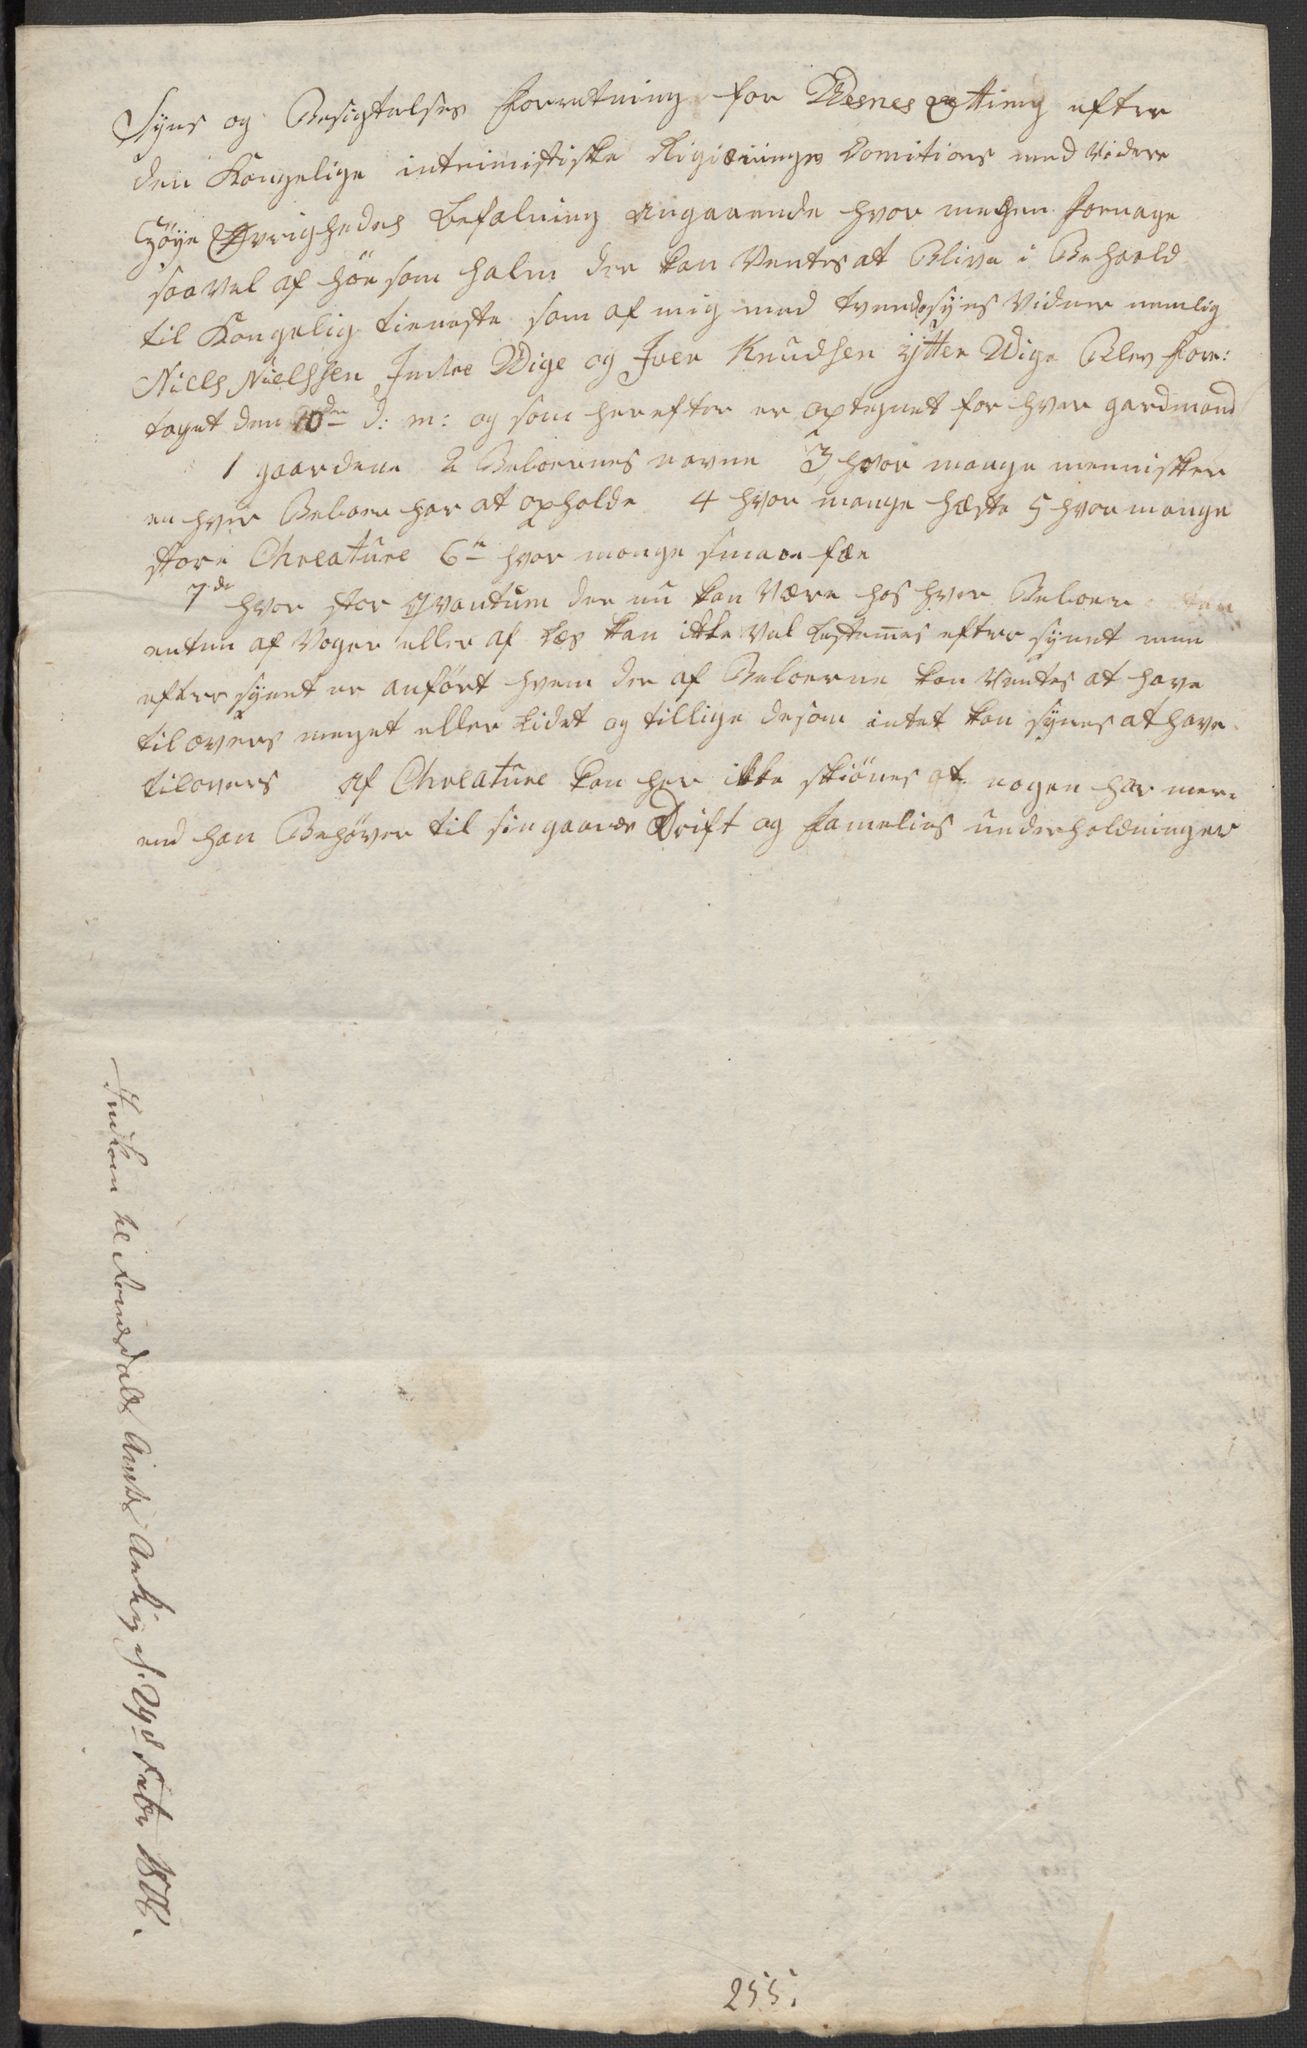 Syns og Besigtelses Forretning for Wesnes Otting efter
den Kongelige interimistiske Rigiærings Comitions med Videre
Høye Øvrigheders befalning angaaende hvor megen Forrage
saavel af Höe som halm der kan Ventes at Blive i Behold
til Kongelig tieneste som af mig med tvende syns Vidner nemlig
Niels Nielssen Indre Wige og Iver Knudsen Ÿtter Wige Blev Fore:
taget den 10de d: m: og som herefter er optegnet for hver gardmand
1 gaardene 2 Beboernes navne 3 hvor mange mennisker
en hver Beboer har at opholde 4 hvor mange hæste 5 hvor mange
store Chreature 6te hvor mange smaae fæe
7de hvor stor Qvantum der nu kan Være hos hver Beboer
enten af Voger eller af Læs kan ikke vel bestemmes efter synet men
efter synet er anført hvem der af Beboerne kan Ventes at have
tilovers meget eller Lidet og tillige de som intet kan synes at have
tilovers af Chreature kan her ikke skiönes at nogen har mer
end han Behøver til sin gaards Drift og Famelies underholdninger
Indkom til Romsdals Amts
255.